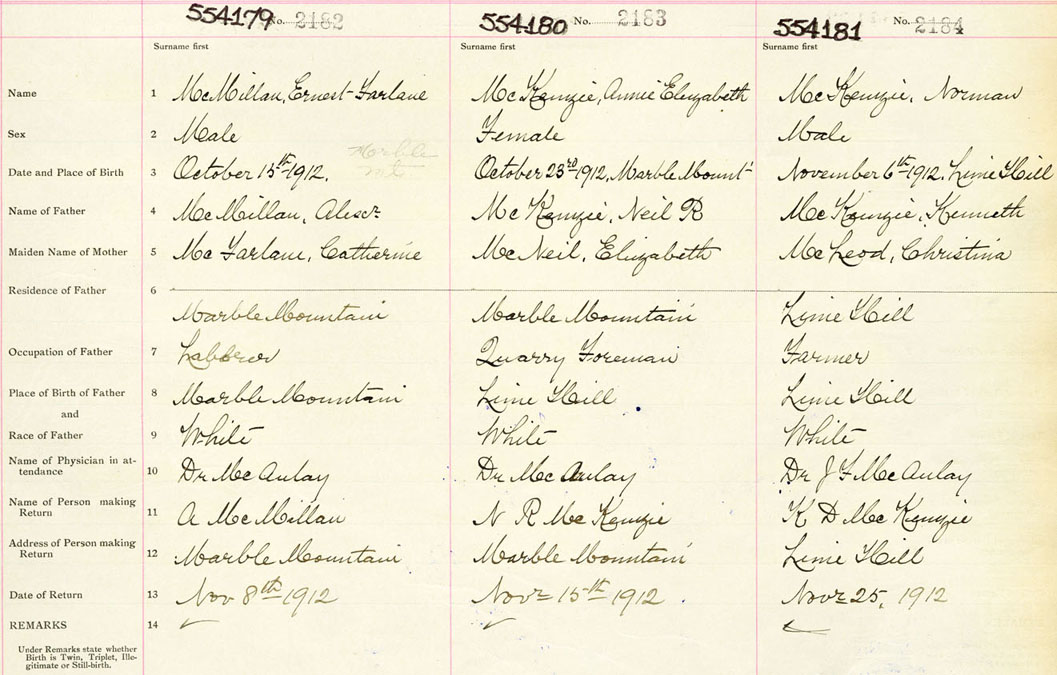 554179 No. 2182 554180 No. 2183 554181 No. 2184
Surname first Surname first Surname first
Name 1 McMillan, Ernest Farlane McKenzie, Annie Elizabeth McKenzie, Norman
Sex 2 Male Female Male
Marble Mt
Date and Place of Birth 3 October 15th 1912. October 23rd 1912, Marble Mount November 6th 1912, Lime Hill
Name of Father 4 McMillan, Alexr McKenzie, Neil R McKenzie, Kenneth
Maiden Name of Mother 5 McFarlane, Catherine McNeil, Elizabeth McLeod, Christina
Residence of Father 6
Marble Mountain Marble Mountain Lime Hill
Occupation of Father 7 Labborer Quarry Foreman Farmer
Place of Birth of Father 8 Marble Mountain Lime Hill Lime Hill
and
Race of Father 9 White White White
Name of Physician in at-
tendance 10 Dr McAulay Dr McAulay Dr J F McAulay
Name of Person making
Return 11 A McMillan N R McKenzie K D McKenzie
Address of Person making
Return 12 Marble Mountain Marble Mountain Lime Hill
Date of Return 13 Nov 8th 1912 Novr 15th 1912 Novr 25, 1912
REMARKS 14
Under Remarks state whether
Birth is Twin, Triplet, Ille-
gitimate or Still-birth.